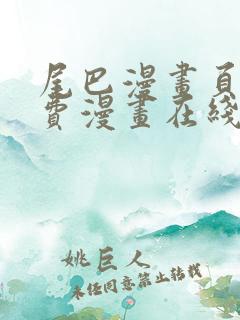 尾巴漫畫頁
費漫畫在綫
姚巨人
未任同意禁止转载